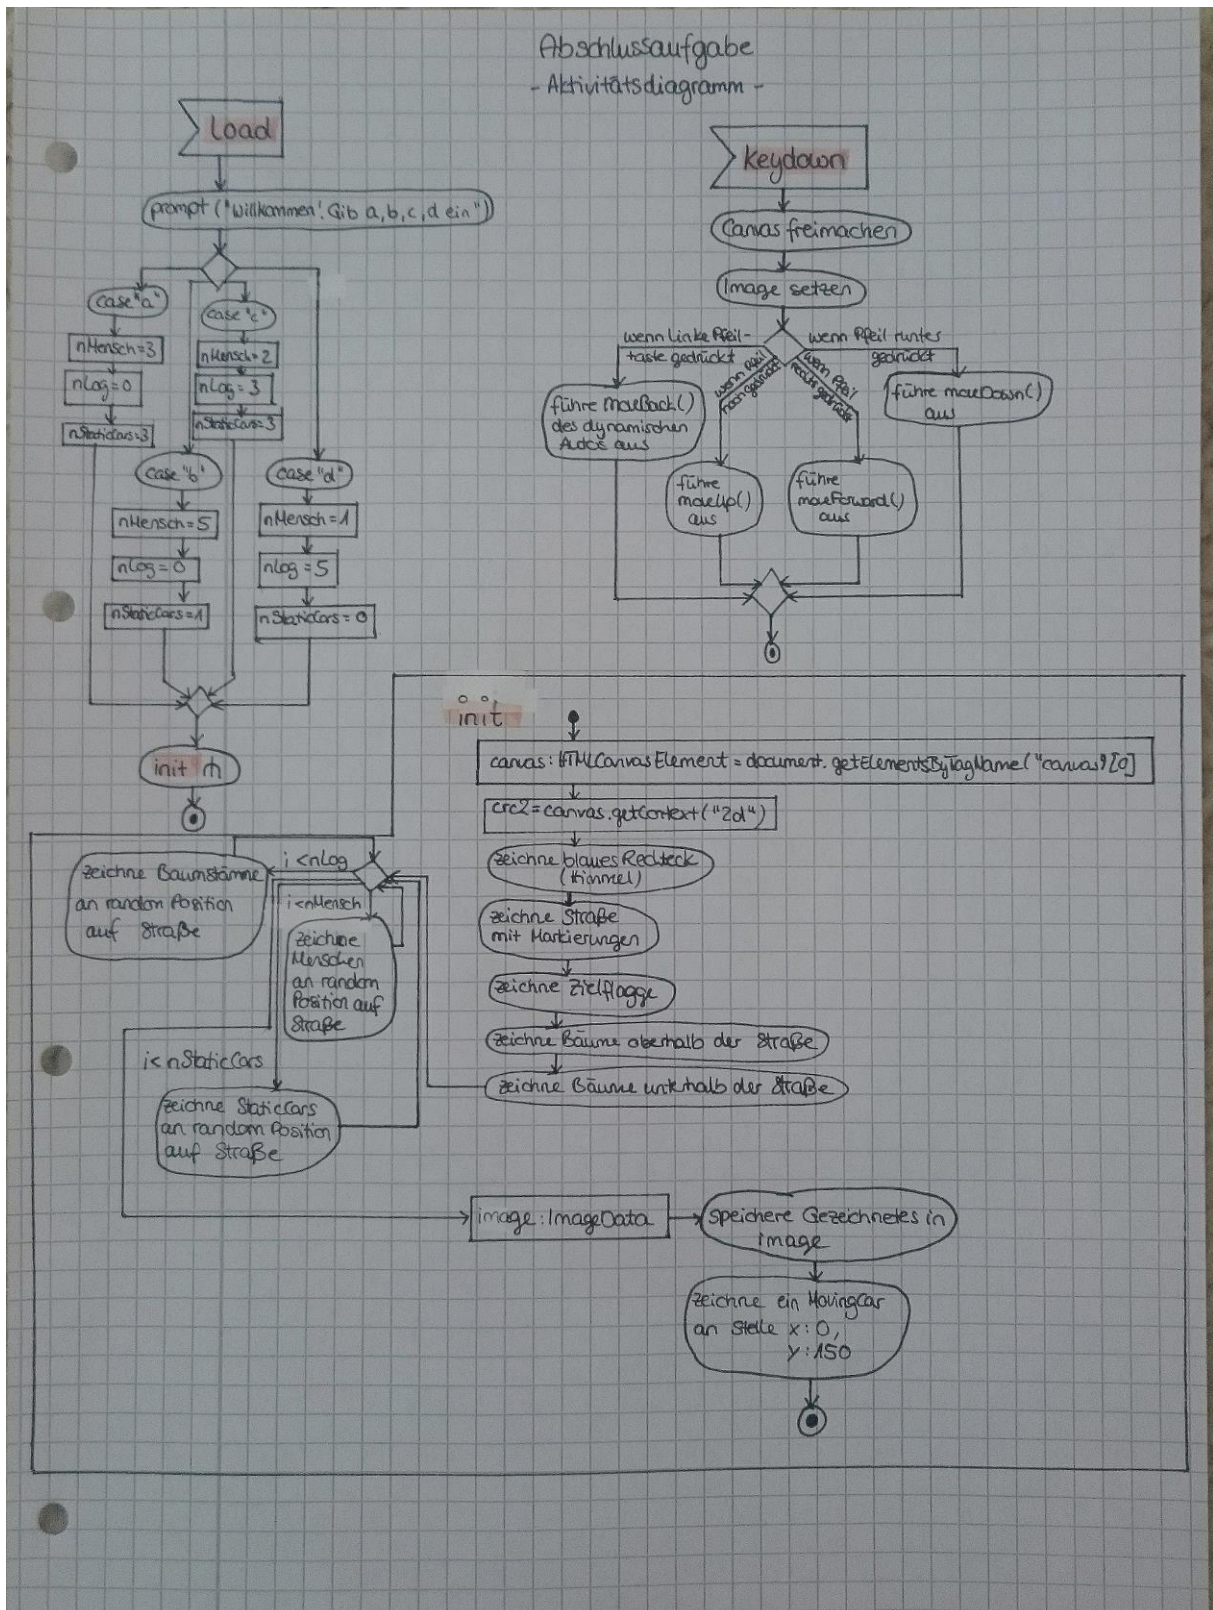 Abschlussaufgabe
- Aktivitätsdiagramm -
Load
prompt ("Willkommen! Gib a,b,c,d ein")
case "a"
nMensch=3
nLog=0
nStaticCars=3
case "c"
nMensch=2
nLog=3
nStaticCars=3
case "b"
nMensch=5
nLog=0
nStaticCars=1
case "d"
nMensch=1
nLog=5
nStaticCars=0
init
keydown
Canvas freimachen
Image setzen
wenn Linke Pfeil-
taste gedrückt
wenn Pfeil
hoch gedrückt
wenn Pfeil
rechts gedrückt
wenn Pfeil runter
gedrückt
führe moveBack()
des dynamischen
Autos aus
führe
moveUp()
aus
führe
moveForward()
aus
führe moveDown()
aus
init
canvas: HTMLCanvasElement = document.getElementsByTagName("canvas")[0]
crc2=canvas.getContext("2d")
zeichne blaues Rechteck
(Himmel)
zeichne Straße
mit Markierungen
zeichne Zielflagge
zeichne Bäume oberhalb der Straße
zeichne Bäume unterhalb der Straße
i<nLog
zeichne Baumstämme
an random Position
auf Straße
i<nMensch
zeichne
Menschen
an random
Position auf
Straße
i<nStaticCars
zeichne StaticCars
an random Position
auf Straße
image: ImageData
speichere Gezeichnetes in
image
zeichne ein MovingCar
an Stelle x:0,
y:150